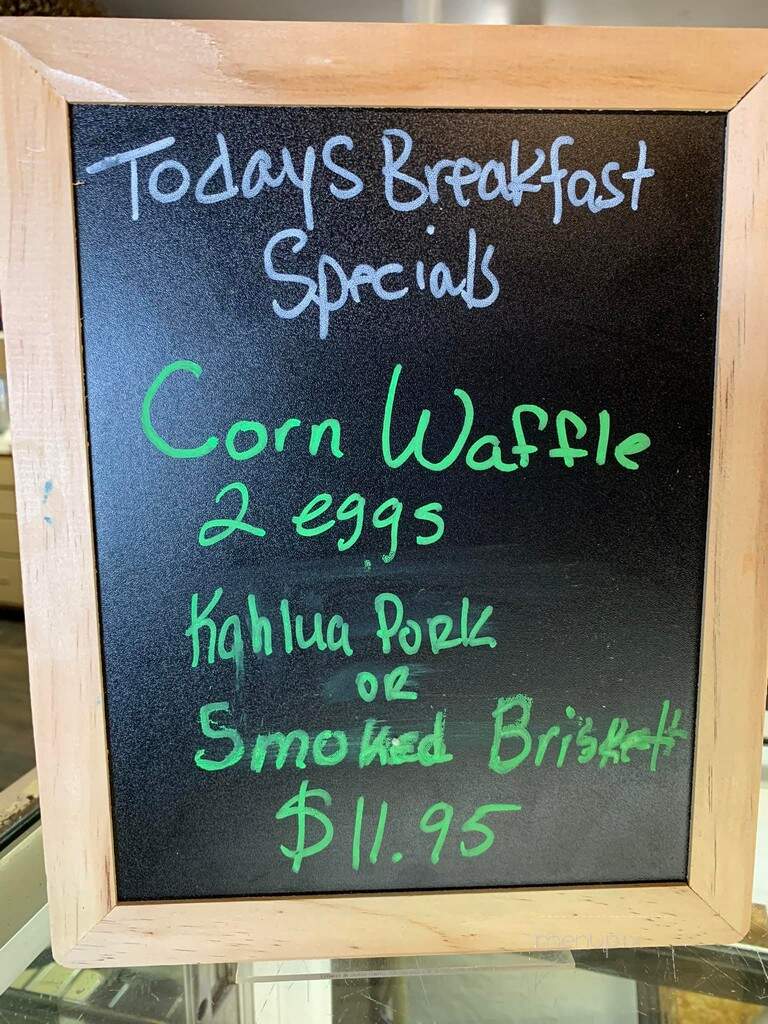 Todays Breakfast
Specials
Corn Waffle
2 eggs
Kahlua Pork
OR
Smoked Brisket
$11.95